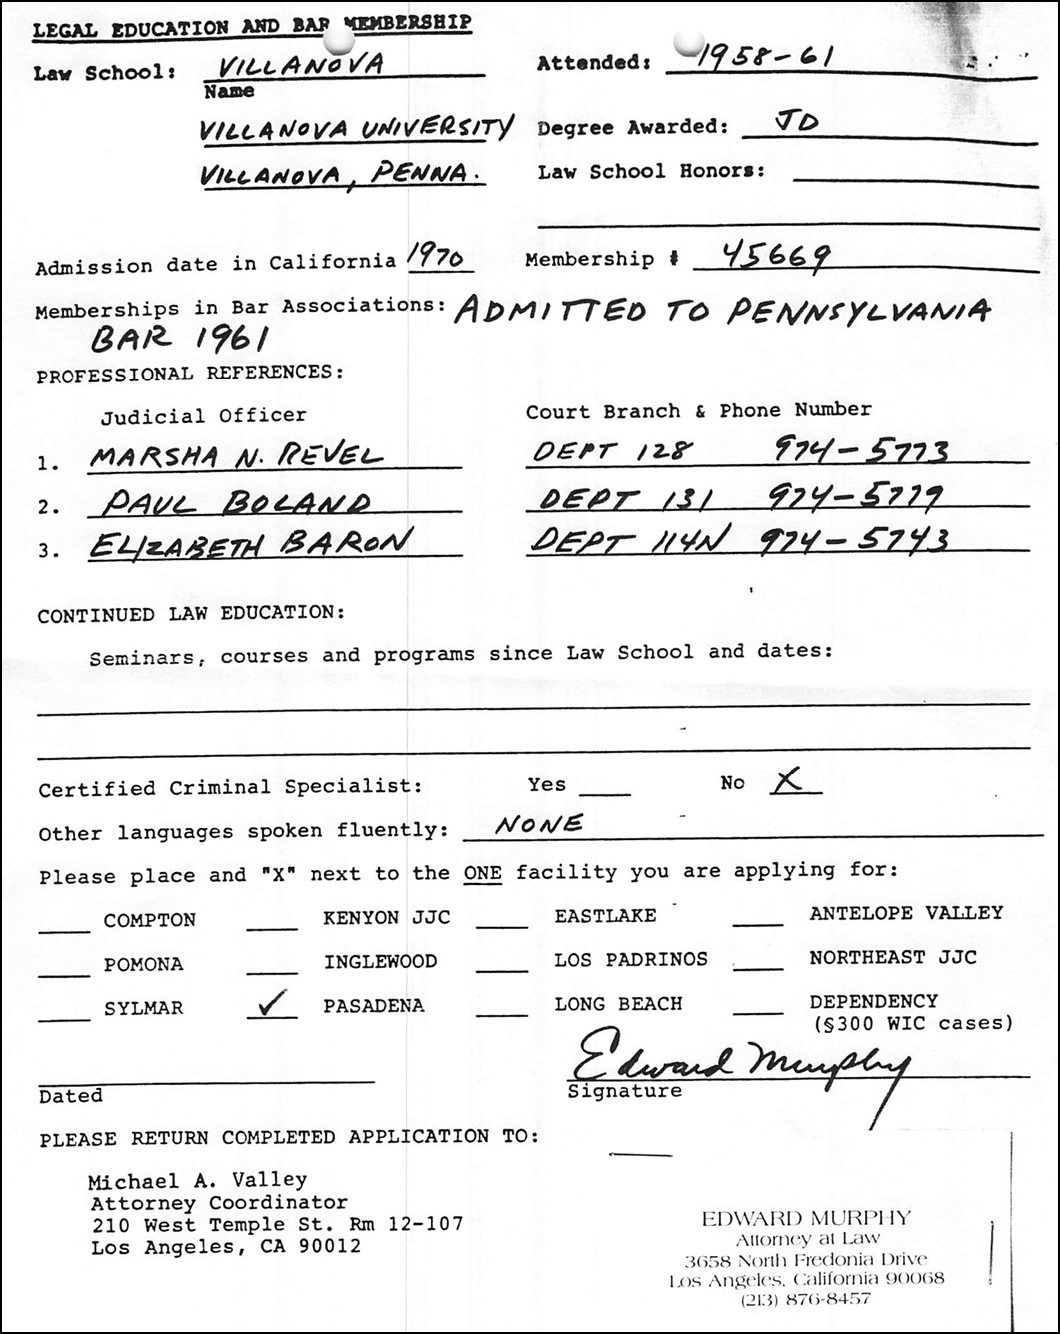 LEGAL EDUCATION AND BAR MEMBERSHIP
Law School: VILLANOVA Attended: 1958-61
Name
VILLANOVA UNIVERSITY Degree Awarded: JD
VILLANOVA, PENNA. Law School Honors:
Admission date in California 1970 Membership # 45669
Memberships in Bar Associations: ADMITTED TO PENNSYLVANIA
BAR 1961
PROFESSIONAL REFERENCES:
Judicial Officer Court Branch & Phone Number
1. MARSHA N. REVEL DEPT 128 974-5773
2. PAUL BOLAND DEPT 131 974-5779
3. ELIZABETH BARON DEPT 114N 974-5743
CONTINUED LAW EDUCATION:
Seminars, courses and programs since Law School and dates:
Certified Criminal Specialist: Yes ____ No X
Other languages spoken fluently: NONE
Please place and "X" next to the ONE facility you are applying for:
____ COMPTON ____ KENYON JJC ____ EASTLAKE ____ ANTELOPE VALLEY
____ POMONA ____ INGLEWOOD ____ LOS PADRINOS ____ NORTHEAST JJC
____ SYLMAR ✓ PASADENA ____ LONG BEACH ____ DEPENDENCY
(§300 WIC cases)
Edward Murphy
Dated Signature
PLEASE RETURN COMPLETED APPLICATION TO:
Michael A. Valley
Attorney Coordinator
210 West Temple St. Rm 12-107
Los Angeles, CA 90012
EDWARD MURPHY
Attorney at Law
3658 North Fredonia Drive
Los Angeles, California 90068
(213) 876-8457